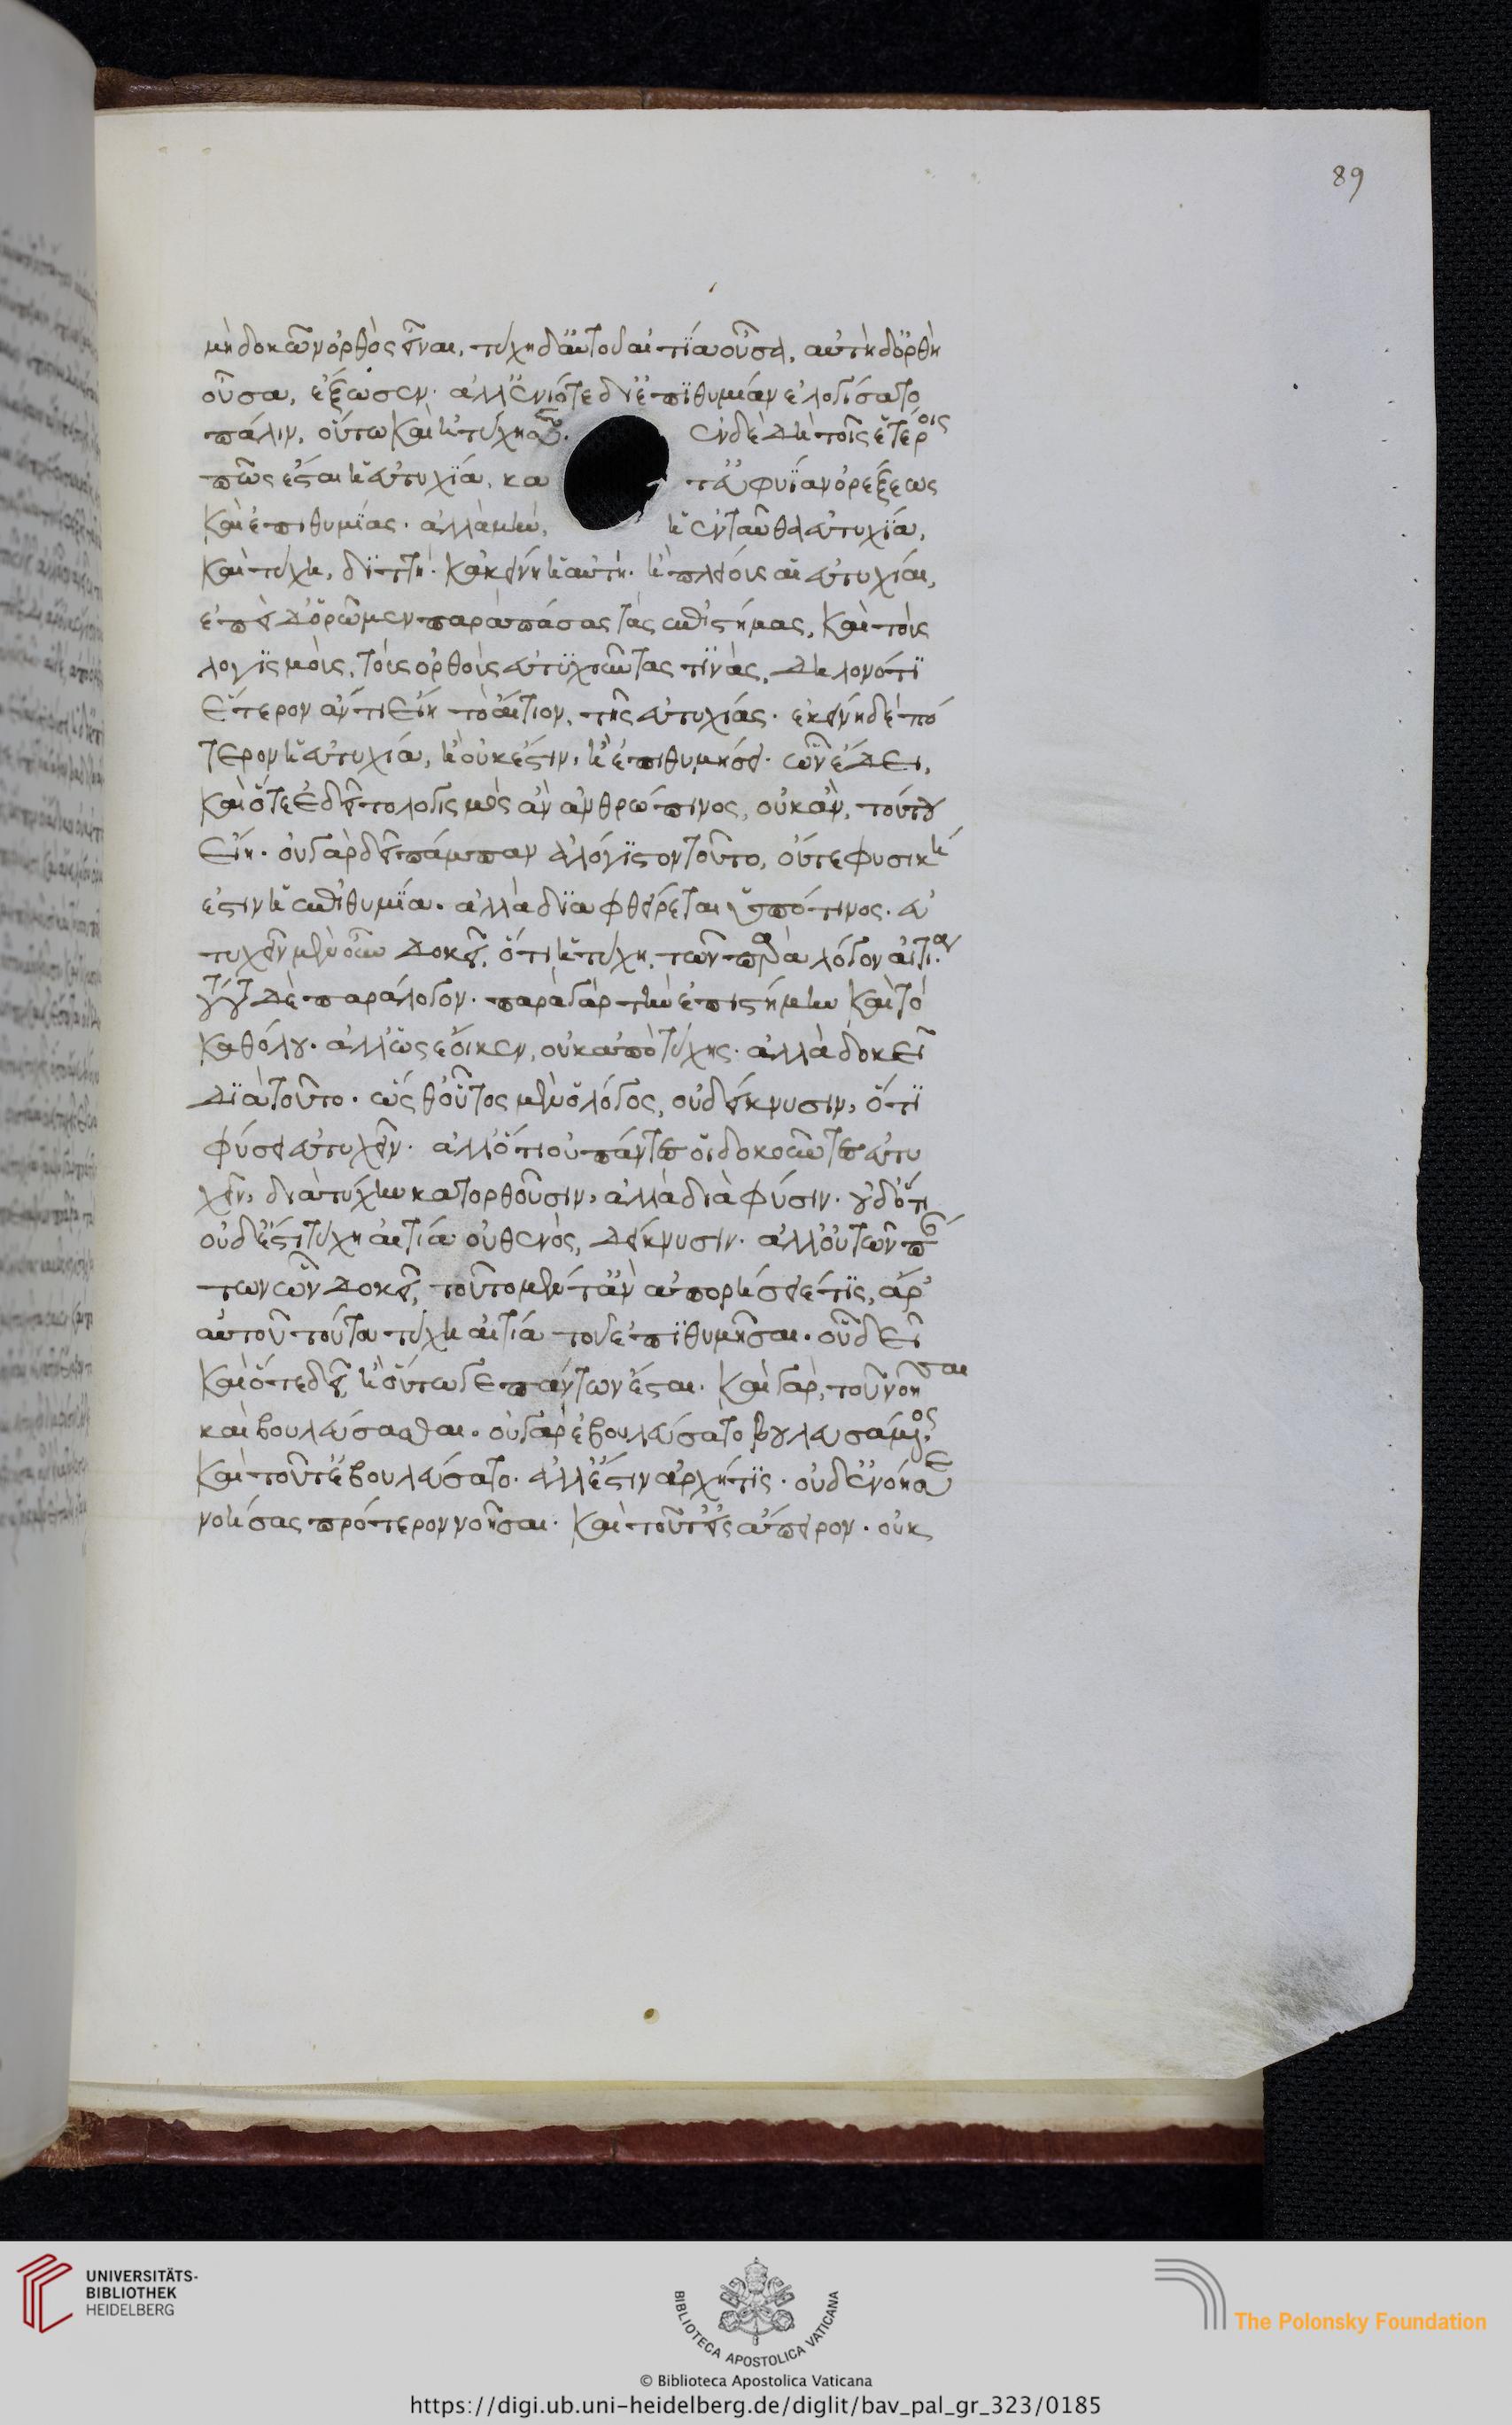 89
μὴ δοκῶν ὀρθὸς εἶναι, τύχη δ' αὐτοῦ αἰτία οὖσα, αὐτὴ δ' ὀρθὴ
οὖσα, ἐξέωσεν· ἀλλ' ἐνιότε δι' ἐπιθυμίαν ἐλογίσατο
πάλιν, οὕτω καὶ ἠτύχησεν. ἐν δὲ δὴ τοῖς ἑτέροις
πῶς ἔσται ἡ εὐτυχία, κατ' εὐφυΐαν ὀρέξεως
καὶ ἐπιθυμίας· ἀλλὰ μὴν, ἡ ἐνταῦθα εὐτυχία,
καὶ τύχη, διττὴ· κἀκείνη ἡ αὐτή· ἢ πλείους αἱ εὐτυχίαι,
ἐπεὶ δ' ὁρῶμεν παρὰ πάσας τὰς ἐπιστήμας, καὶ τοὺς
λογισμοὺς, τοὺς ὀρθοὺς εὐτυχοῦντας τινὰς, δηλονότι
ἕτερον ἄν τι εἴη τὸ αἴτιον, τῆς εὐτυχίας· ἐκείνη δὲ πό
τερον ἡ εὐτυχία, ἢ οὐκ ἔστιν, ἢ ἐπιθυμήσει· ὧν ἔδει,
καὶ ὅτε ἔδει τὸ λογισμὸς ἂν ἀνθρώπινος, οὐκ ἂν, τούτου
εἴη· οὐ γὰρ δεῖ πάμπαν ἀλόγιστον τοῦτο, οὔτε φυσικὴ
ἐστιν ἡ ἐπιθυμία· ἀλλὰ διαφθείρεται ὑπό τινος· εὐ
τυχεῖν μὲν οὖν δοκεῖ, ὅτι ἡ τύχη, τῶν παρὰ λόγον αἰτία·
τοῦτο δὲ παράλογον· παρὰ γὰρ τὴν ἐπιστήμην καὶ τὸ
καθόλου· ἀλλ' ὡς ἔοικεν, οὐκ ἀπὸ τύχης· ἀλλὰ δοκεῖ
διὰ τοῦτο· ὥσθ' οὗτος μὲν ὁ λόγος, οὐ δείκνυσιν, ὅτι
φύσει εὐτυχεῖν· ἀλλ' ὅτι οὐ πάντες οἱ δοκοῦντες εὐτυ
χεῖν, διὰ τύχην κατορθοῦσιν, ἀλλὰ διὰ φύσιν· οὐδ' ὅτι
οὐδέ ἐστι τύχη αἰτία οὐθενὸς, δείκνυσιν· ἀλλ' οὐ τῶν πάν
των ὧν δοκεῖ, τοῦτο μέντ' ἂν ἀπορήσειέ τις, ἆρ'
αὐτοῦ τούτου τύχη αἰτία τοῦ ἐπιθυμῆσαι· οὗ δεῖ
καὶ ὅτε δεῖ, ἢ οὕτω γε πάντων ἔσται· καὶ γὰρ, τοῦ νοῆσαι
καὶ βουλεύσασθαι· οὐ γὰρ ἐβουλεύσατο βουλευσάμενος
καὶ τοῦτ' ἐβουλεύσατο· ἀλλ' ἔστιν ἀρχή τις· οὐδ' ἐνόησε
νοήσας πρότερον νοῆσαι· καὶ τοῦτ' εἰς ἄπειρον· οὐκ
UNIVERSITÄTS-
BIBLIOTHEK
HEIDELBERG
BIBLIOTECA APOSTOLICA VATICANA
The Polonsky Foundation
© Biblioteca Apostolica Vaticana
https://digi.ub.uni-heidelberg.de/diglit/bav_pal_gr_323/0185